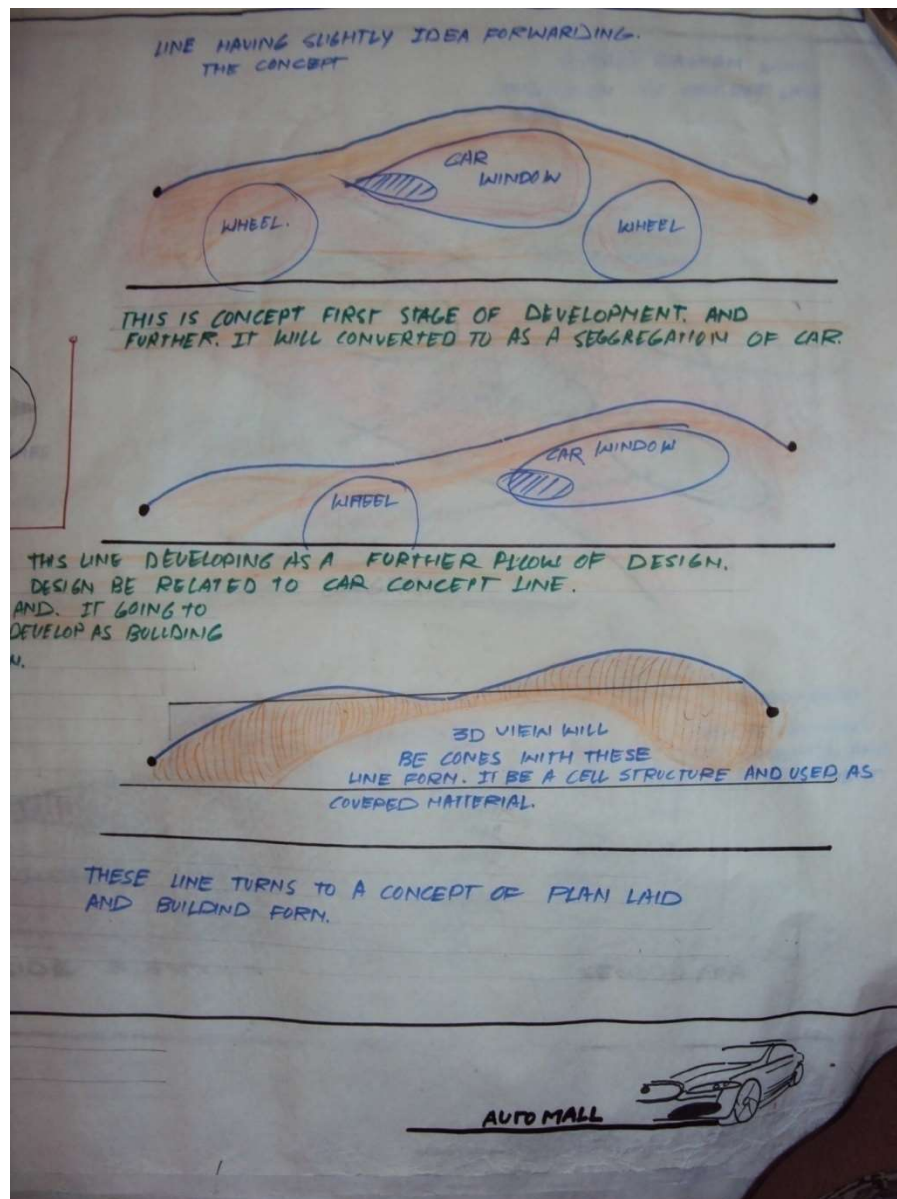 LINE HAVING SLIGHTLY IDEA FORWARDING.
THE CONCEPT
CAR
WINDOW
WHEEL.
WHEEL
THIS IS CONCEPT FIRST STAGE OF DEVELOPMENT. AND
FURTHER. IT WILL CONVERTED TO AS A SEGGREGATION OF CAR.
CAR WINDOW
WHEEL
THIS LINE DEVELOPING AS A FURTHER OF DESIGN.
DESIGN BE RELATED TO CAR CONCEPT LINE.
AND. IT GOING TO
DEVELOP AS BUILDING
N.
3D VIEW WILL
BE CONES WITH THESE
LINE FORM. IT BE A CELL STRUCTURE AND USED AS
COVERED MATTERIAL.
THESE LINE TURNS TO A CONCEPT OF PLAN LAID
AND BUILDIND FORM.
AUTO MALL